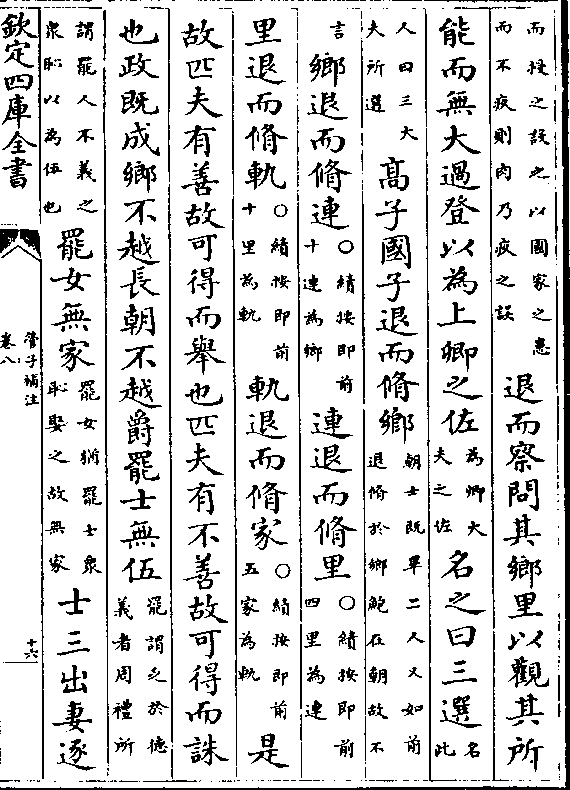 而授之設之以國家之患而不疚則肉乃疚之誤退而察問其鄉里以觀其所
能而無大過登以為上卿之佐為卿大夫之佐名之曰三選名此
人曰三大夫所選髙子國子退而脩鄉朝士既畢二人又如前退脩於鄉鮑在朝故不
言鄉退而脩連〇績按即前十連為鄉連退而脩里〇績按即前四里為連
里退而脩軌〇績按即前十里為軌軌退而脩家〇績按即前五家為軌是
故匹夫有善故可得而舉也匹夫有不善故可得而誅
也政既成鄉不越長朝不越爵罷士無伍罷謂乏於德義者周禮所
謂罷人不義之衆恥以為伍也罷女無家罷女猶罷士衆恥娶之故無家士三出妻逐
欽定四庫全書
管子補注
卷八
十六